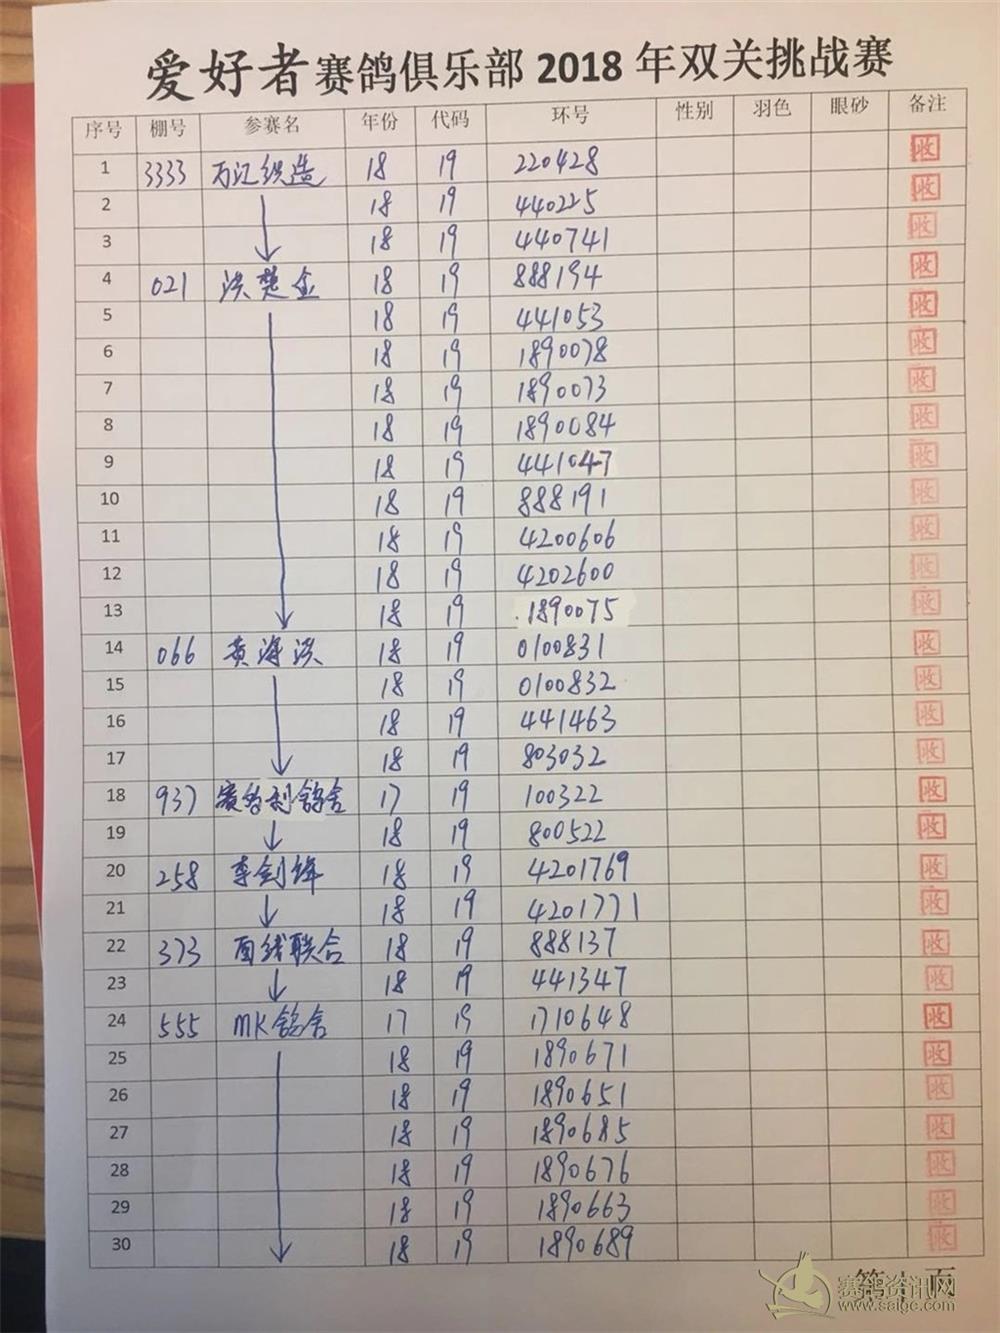 爱好者赛鸽俱乐部 2018 年双关挑战赛
序号 棚号 参赛名 年份 代码 环号 性别 羽色 眼砂 备注
1 3333 万江织造 18 19 220428 收
2 18 19 440225 收
3 18 19 440741 收
4 021 洪楚金 18 19 888194 收
5 18 19 441053 收
6 18 19 1890078 收
7 18 19 1890073 收
8 18 19 1890084 收
9 18 19 441047 收
10 18 19 888191 收
11 18 19 4200606 收
12 18 19 4202600 收
13 18 19 1890075 收
14 066 黄海滨 18 19 0100831 收
15 18 19 0100832 收
16 18 19 441463 收
17 18 19 803032 收
18 937 利鸽舍 17 19 100322 收
19 18 19 800522 收
20 258 李剑锋 18 19 4201769 收
21 18 19 4201771 收
22 373 面线联合 18 19 888137 收
23 18 19 441347 收
24 555 MK鸽舍 17 19 1710648 收
25 18 19 1890671 收
26 18 19 1890651 收
27 18 19 1890685 收
28 18 19 1890676 收
29 18 19 1890663 收
30 18 19 1890689 收
第1页
赛鸽资讯网
www.saigc.com